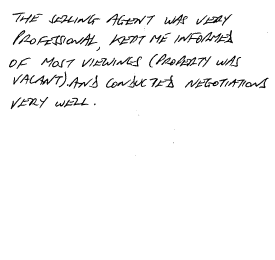 THE SELLING AGENT WAS VERY
PROFESSIONAL, KEPT ME INFORMED
OF MOST VIEWINGS (PROPERTY WAS
VACANT). AND CONDUCTED NEGOTIATIONS
VERY WELL.